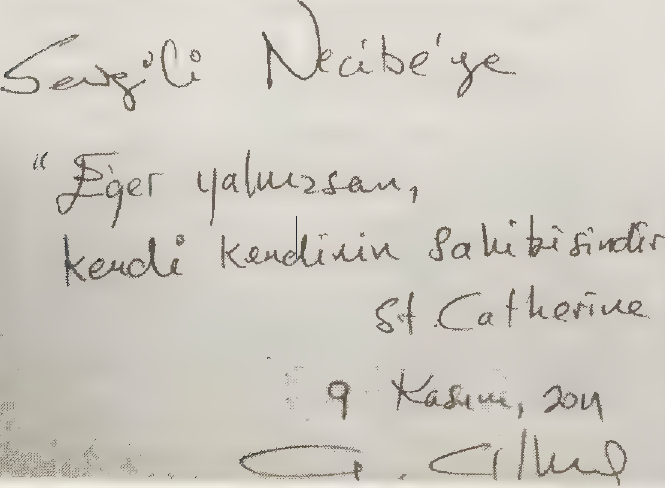 Sevgili Necibe'ye
"Eğer yalnızsan,
kendi kendinin sahibisindir
St. Catherine
9 Kasım, 2011